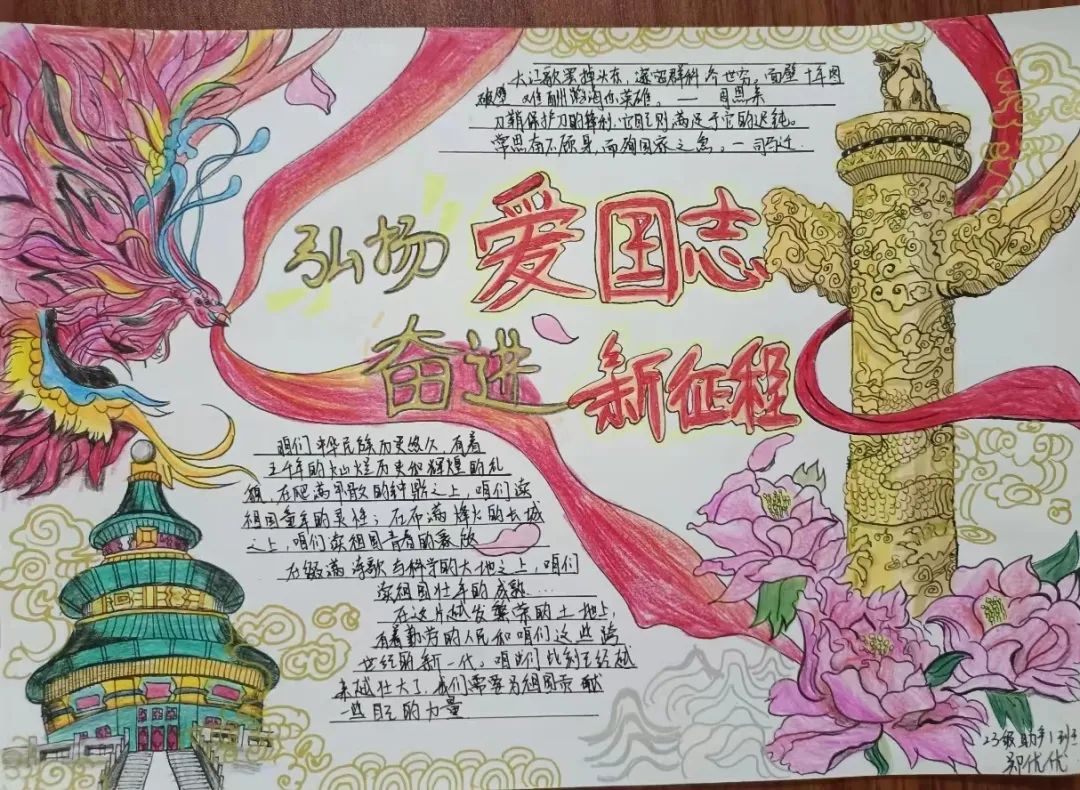 大江歌罢掉头东，邃密群科济世穷，面壁十年图
破壁，难酬蹈海亦英雄。— 周恩来
刀鞘保护刀的锋利，它自则满足于它的迟钝。
常思奋不顾身，而殉国家之急。— 司马迁
弘扬 爱国志
奋进 新征程
咱们中华民族历史悠久，有着
五千年的灿烂历史和辉煌的礼
在爬满甲骸的钟鼎之上，咱们读
祖国童年的灵性；在布满烽火的长城
之上，咱们读祖国青春的豪放
在缀满诗歌与科学的大地之上，咱们
读祖国壮年的成熟……
在这片越发繁荣的土地上，
有着勤劳的人民和咱们这些跨
世纪的新一代。咱们此刻已经越
来越壮大了，我们需要为祖国贡献
一些自己的力量
23级助产1班
郑优优